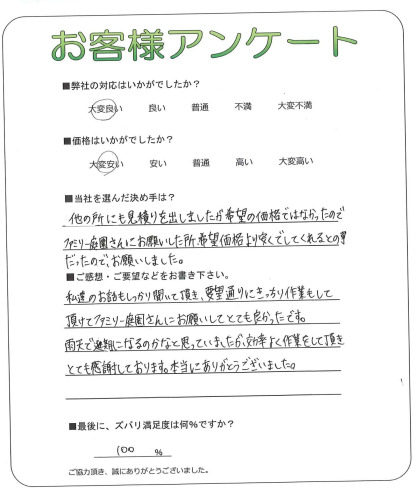 お客様アンケート
■弊社の対応はいかがでしたか？
大変良い 良い 普通 不満 大変不満
■価格はいかがでしたか？
大変安い 安い 普通 高い 大変高い
■当社を選んだ決め手は？
他の所にも見積りを出しましたが希望の価格ではなかったので
ファミリー庭園さんにお願いした所希望価格より安くでしてくれるとの事
だったので、お願いしました。
■ご感想・ご要望などをお書き下さい。
私達のお話もしっかり聞いて頂き、要望通りにきっちり作業もして
頂けてファミリー庭園さんにお願いしてとても良かったです。
雨天で延期になるのかなと思っていましたが、効率よく作業をして頂き
とても感謝しております。本当にありがとうございました。
■最後に、ズバリ満足度は何％ですか？
100 ％
ご協力頂き、誠にありがとうございました。